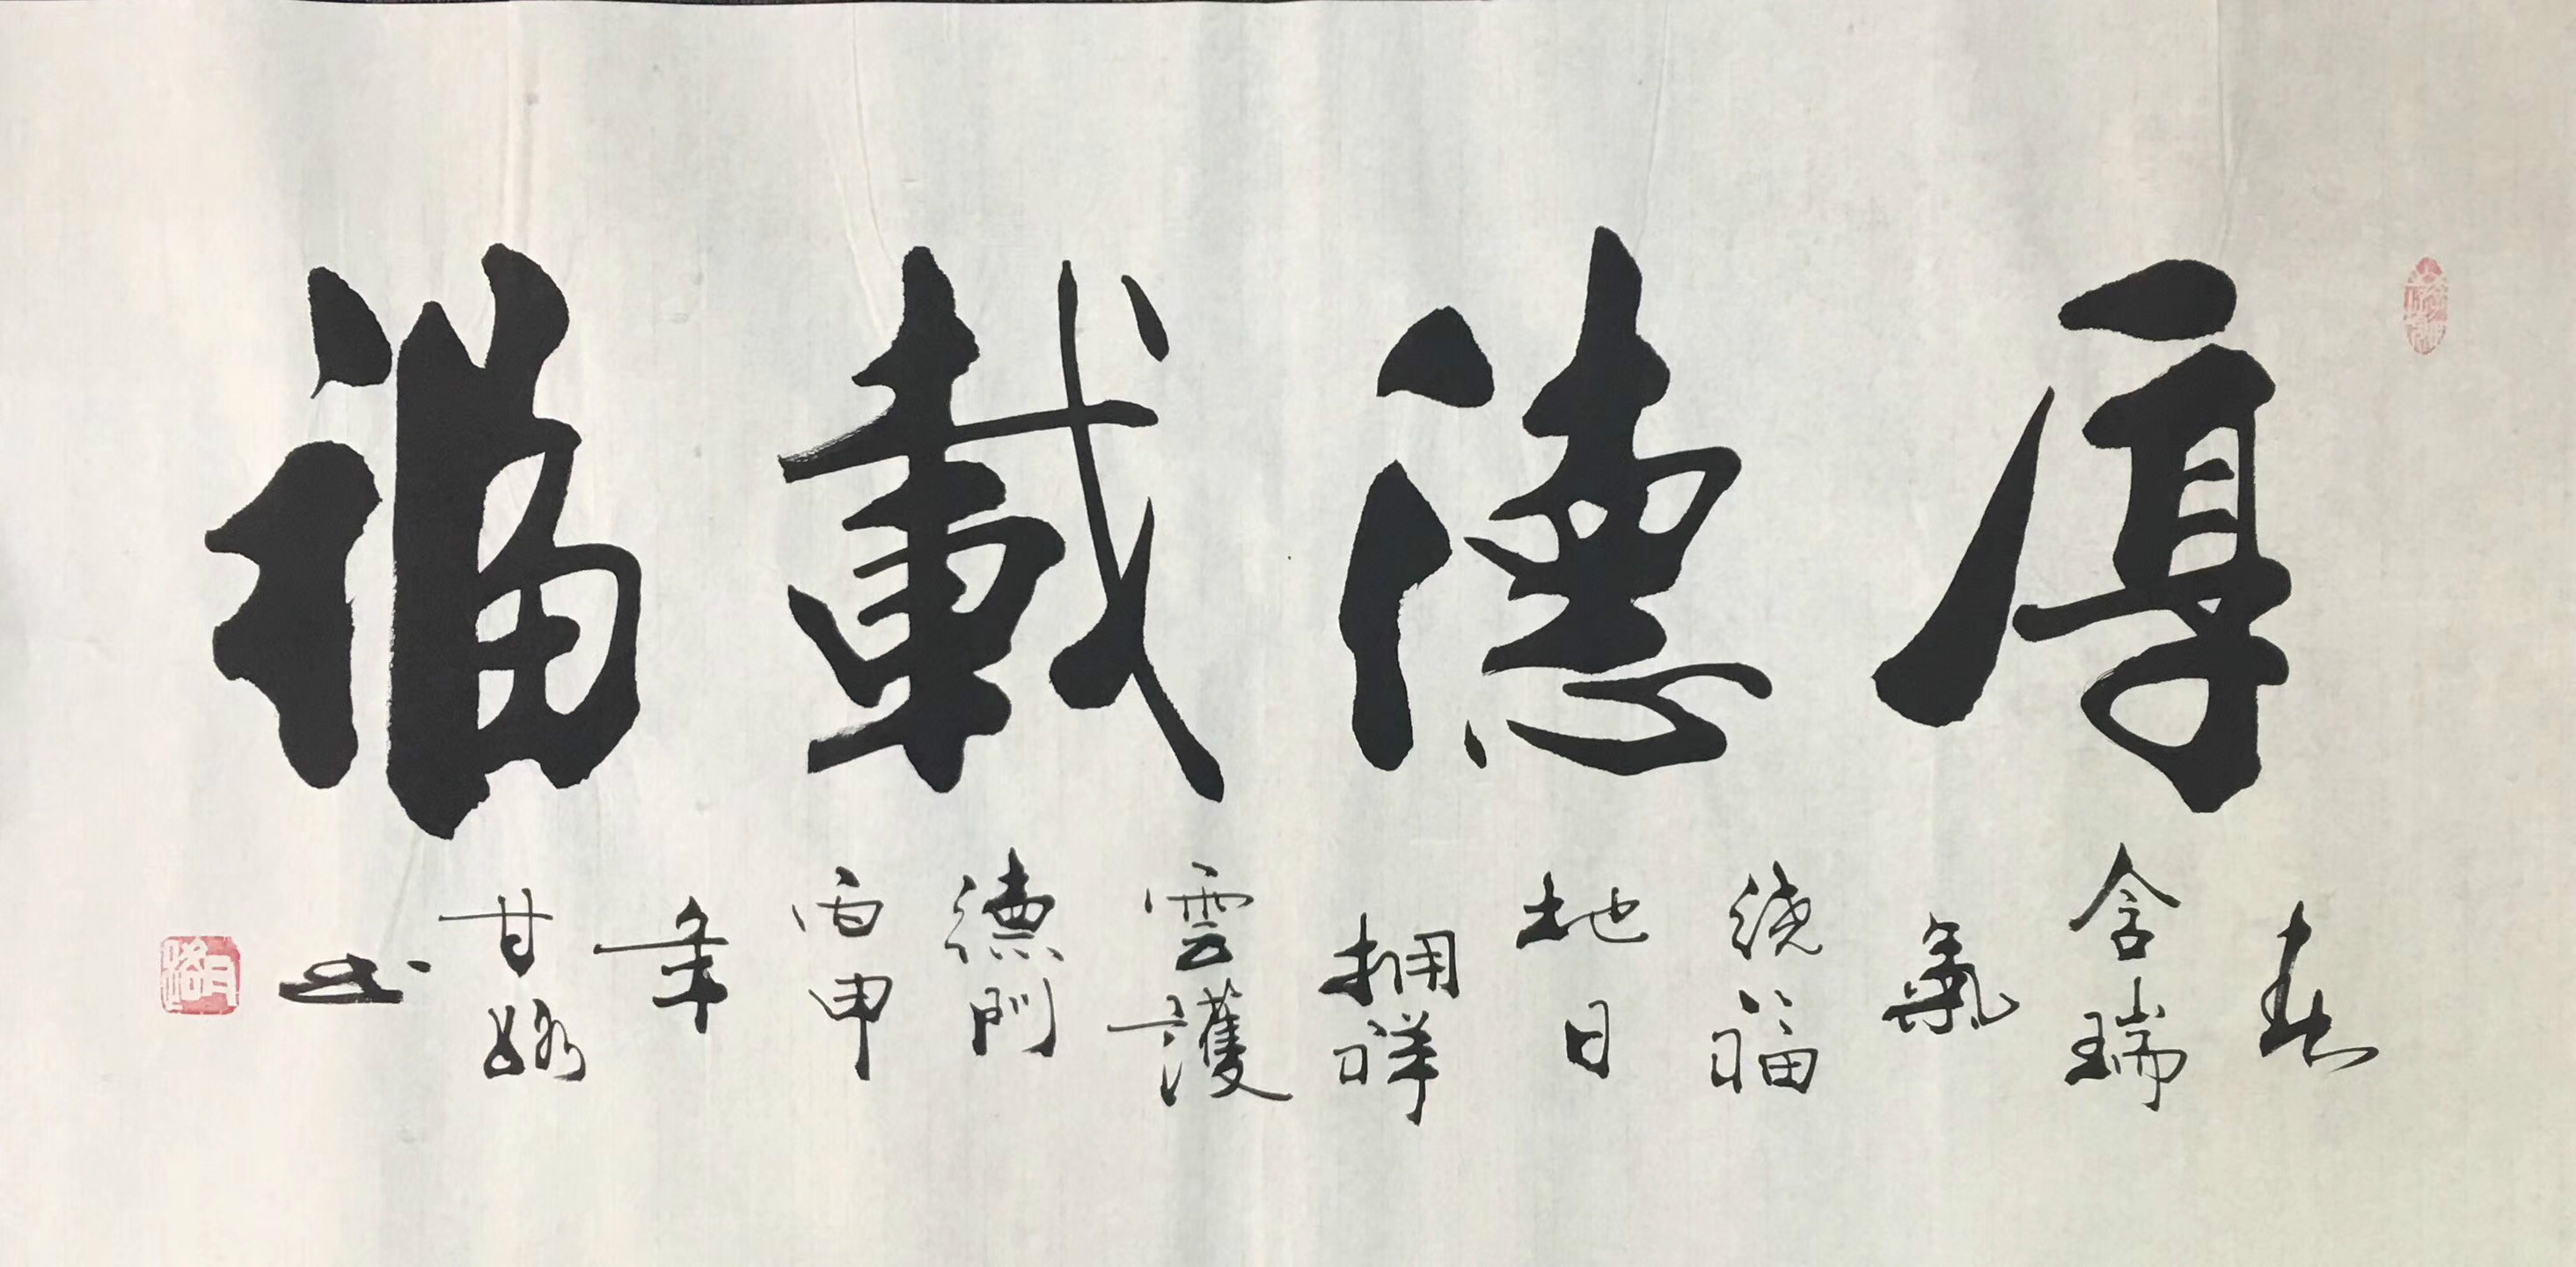 厚德載福
春含瑞氣繞福地日擁祥雲護德門
丙申年甘露書